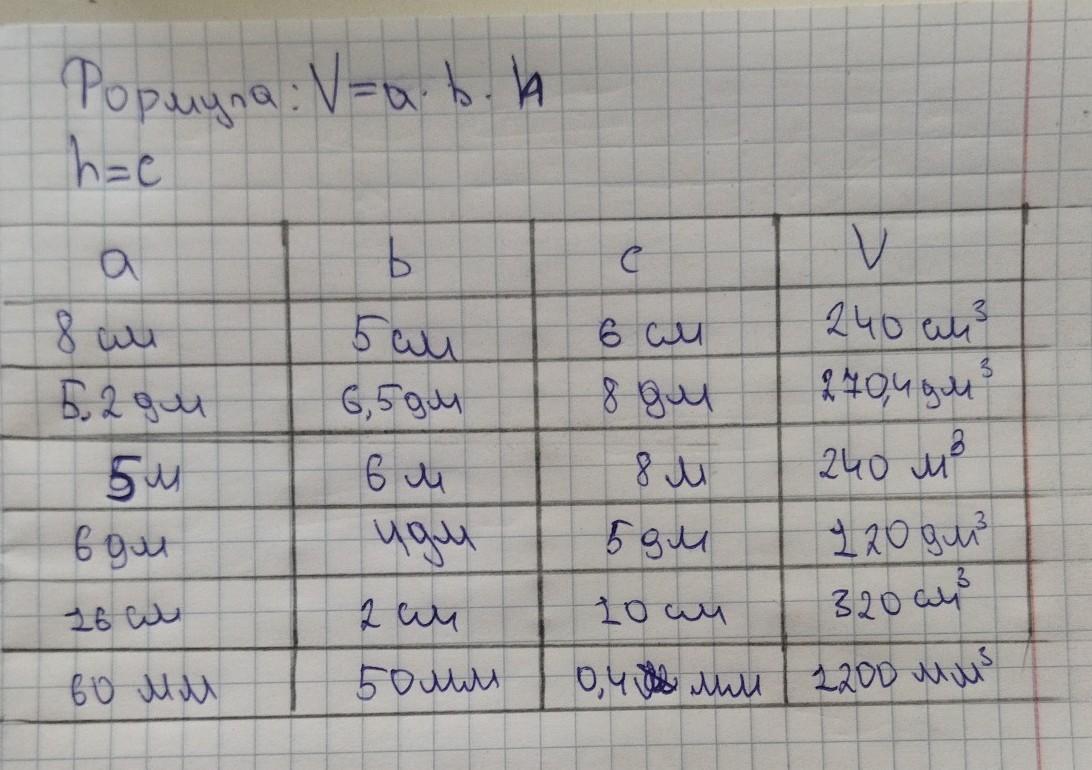 Формула: V=a·b·h
h=c
a b c V
8 см 5 см 6 см 240 см³
5,2 дм 6,5 дм 8 дм 270,4 дм³
5 м 6 м 8 м 240 м³
6 дм 4 дм 5 дм 120 дм³
16 см 2 см 10 см 320 см³
60 мм 50 мм 0,4 мм 1200 мм³